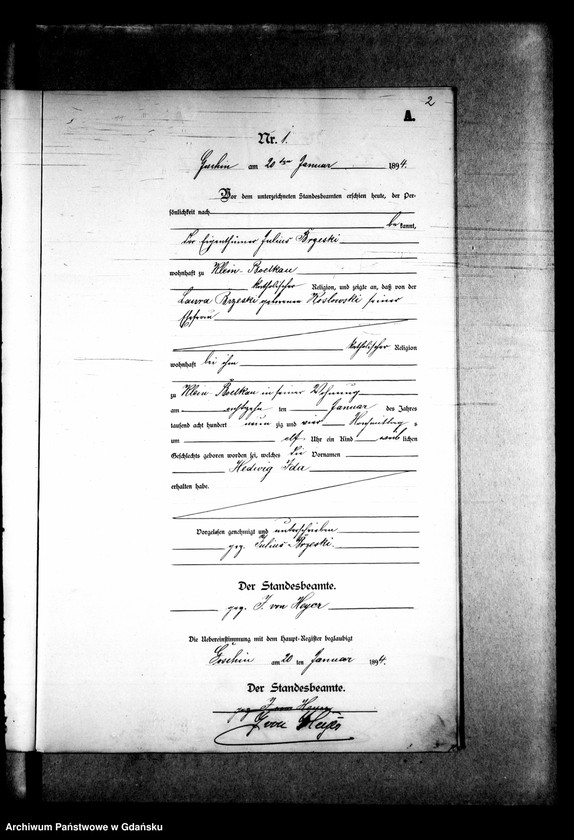 2
A.
Nr. 1.
Goschin am 20ten Januar 1894.
Vor dem unterzeichneten Standesbeamten erschien heute, der Per-
sönlichkeit nach
bekannt,
der Eigenthümer Julius Brzeski
wohnhaft zu Klein-Boelkau
katholischer Religion, und zeigte an, daß von der
Laura Brzeski geborenen Koslowski seiner
Ehefrau
katholischer Religion
wohnhaft bei ihm
zu Klein Bölkau in seiner Wohnung
am achtzehn ten Januar des Jahres
tausend acht hundert neun zig und vier Vormittag s
um elf Uhr ein Kind weib lichen
Geschlechts geboren worden sei, welches die Vornamen
Hedwig Ida
erhalten habe.
Vorgelesen, genehmigt und unterschrieben
gez. Julius Brzeski.
Der Standesbeamte.
gez. J. von Heyer
Die Uebereinstimmung mit dem Haupt-Register beglaubigt
Goschin am 20 ten Januar 1894.
Der Standesbeamte.
gez J. von Heyer
J von Heyer
Archiwum Państwowe w Gdańsku